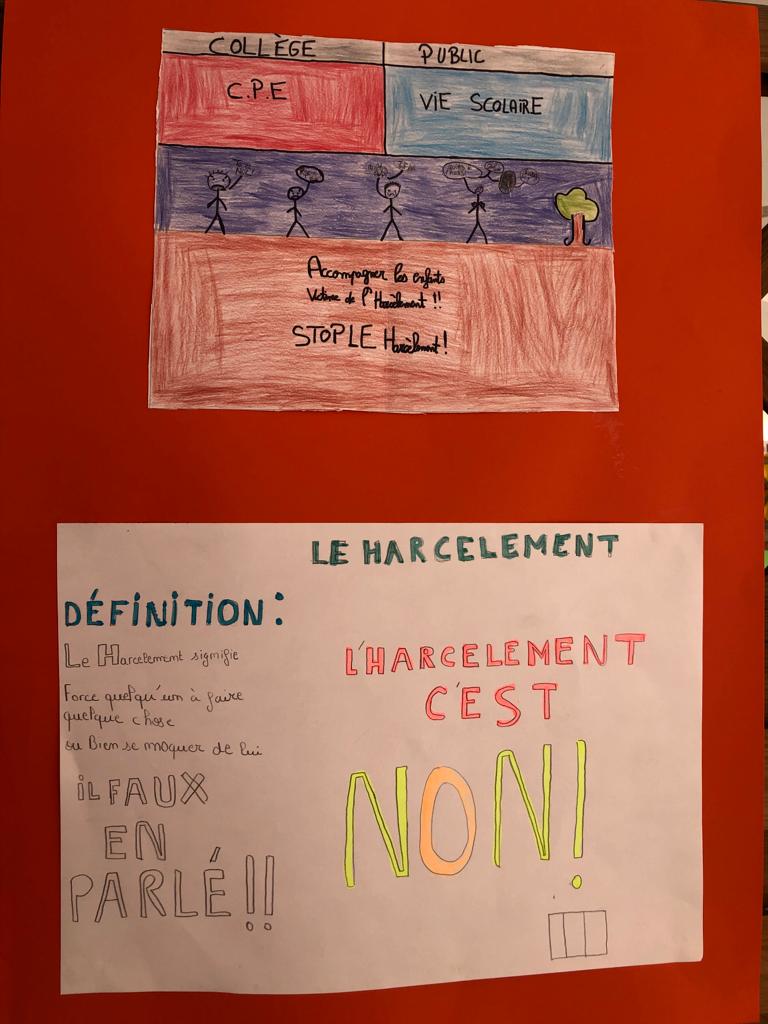 COLLÈGE
PUBLIC
C.P.E
ViE SCOLAiRE
Accompagner les enfants
Victime de l'Harcèlement !!
STOP LE Harcèlement !
LE HARCELEMENT
DÉFiNiTiON :
Le Harcelement signifie
Force quelqu'un à faire
quelque chose
ou Bien se moquer de lui
iL FAUX
EN
PARLÉ !!
L'HARCELEMENT
C'EST
NON !